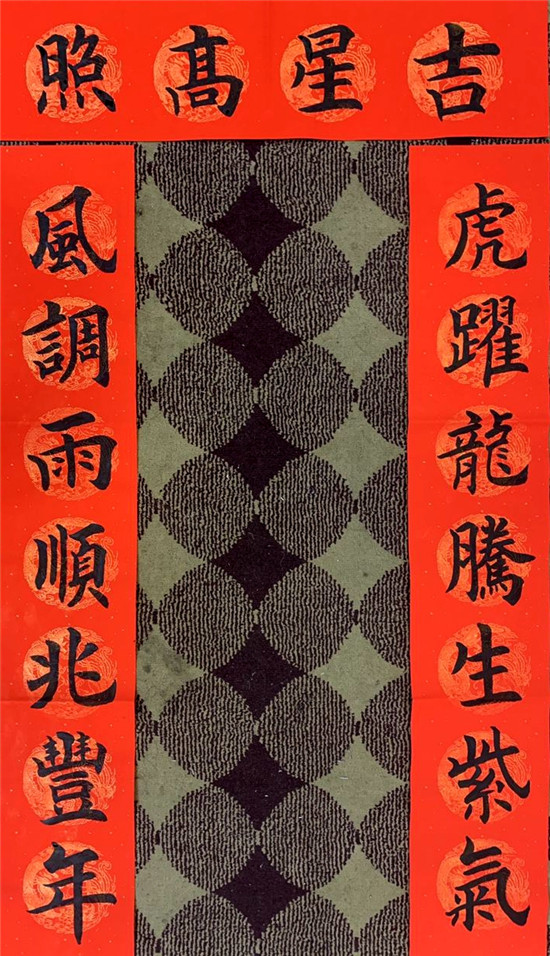 吉星髙照
虎躍龍騰生紫氣
風調雨順兆豐年